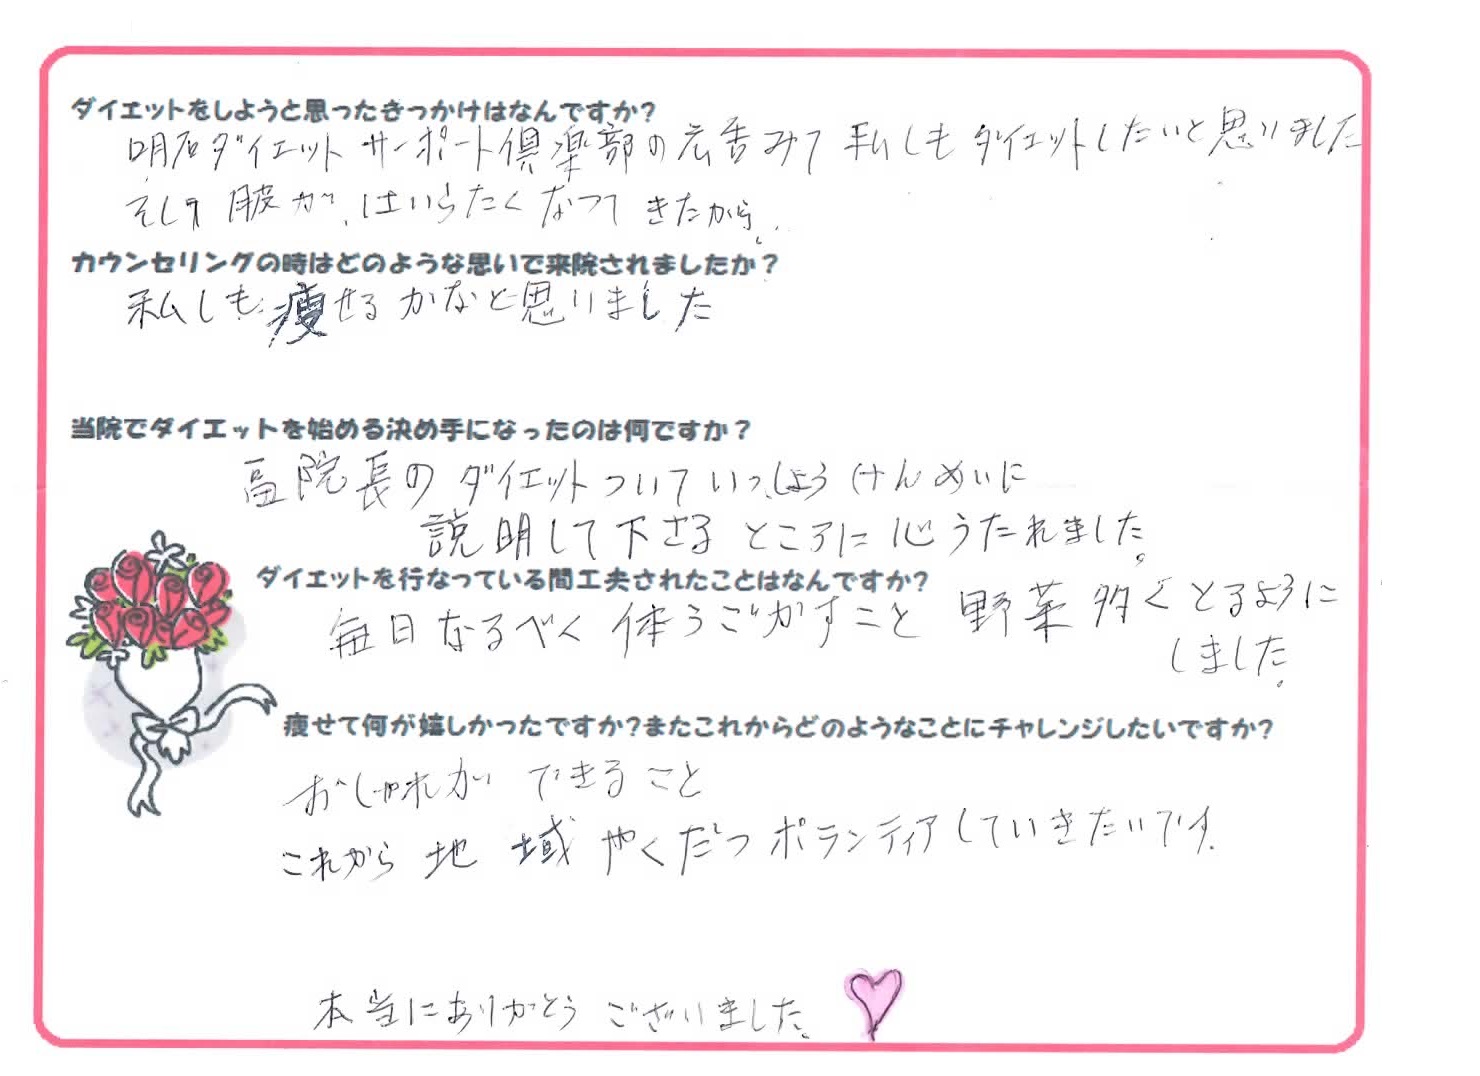 ダイエットをしようと思ったきっかけはなんですか?
明石ダイエットサーポート倶楽部の広告みて私しもダイエットしたいと思いました
そして服が、はいらたくなってきたから。
カウンセリングの時はどのような思いで来院されましたか?
私しも痩せるかなと思いました
当院でダイエットを始める決め手になったのは何ですか?
副院長のダイエットついていっしょうけんめいに
説明して下さるところに心うたれました。
ダイエットを行なっている間工夫されたことはなんですか?
毎日なるべく体うごかすこと 野菜多くとるように
しました。
痩せて何が嬉しかったですか?またこれからどのようなことにチャレンジしたいですか?
おしゃれができること
これから地域やくだつボランティアしていきたいです.
本当にありがとうございました。